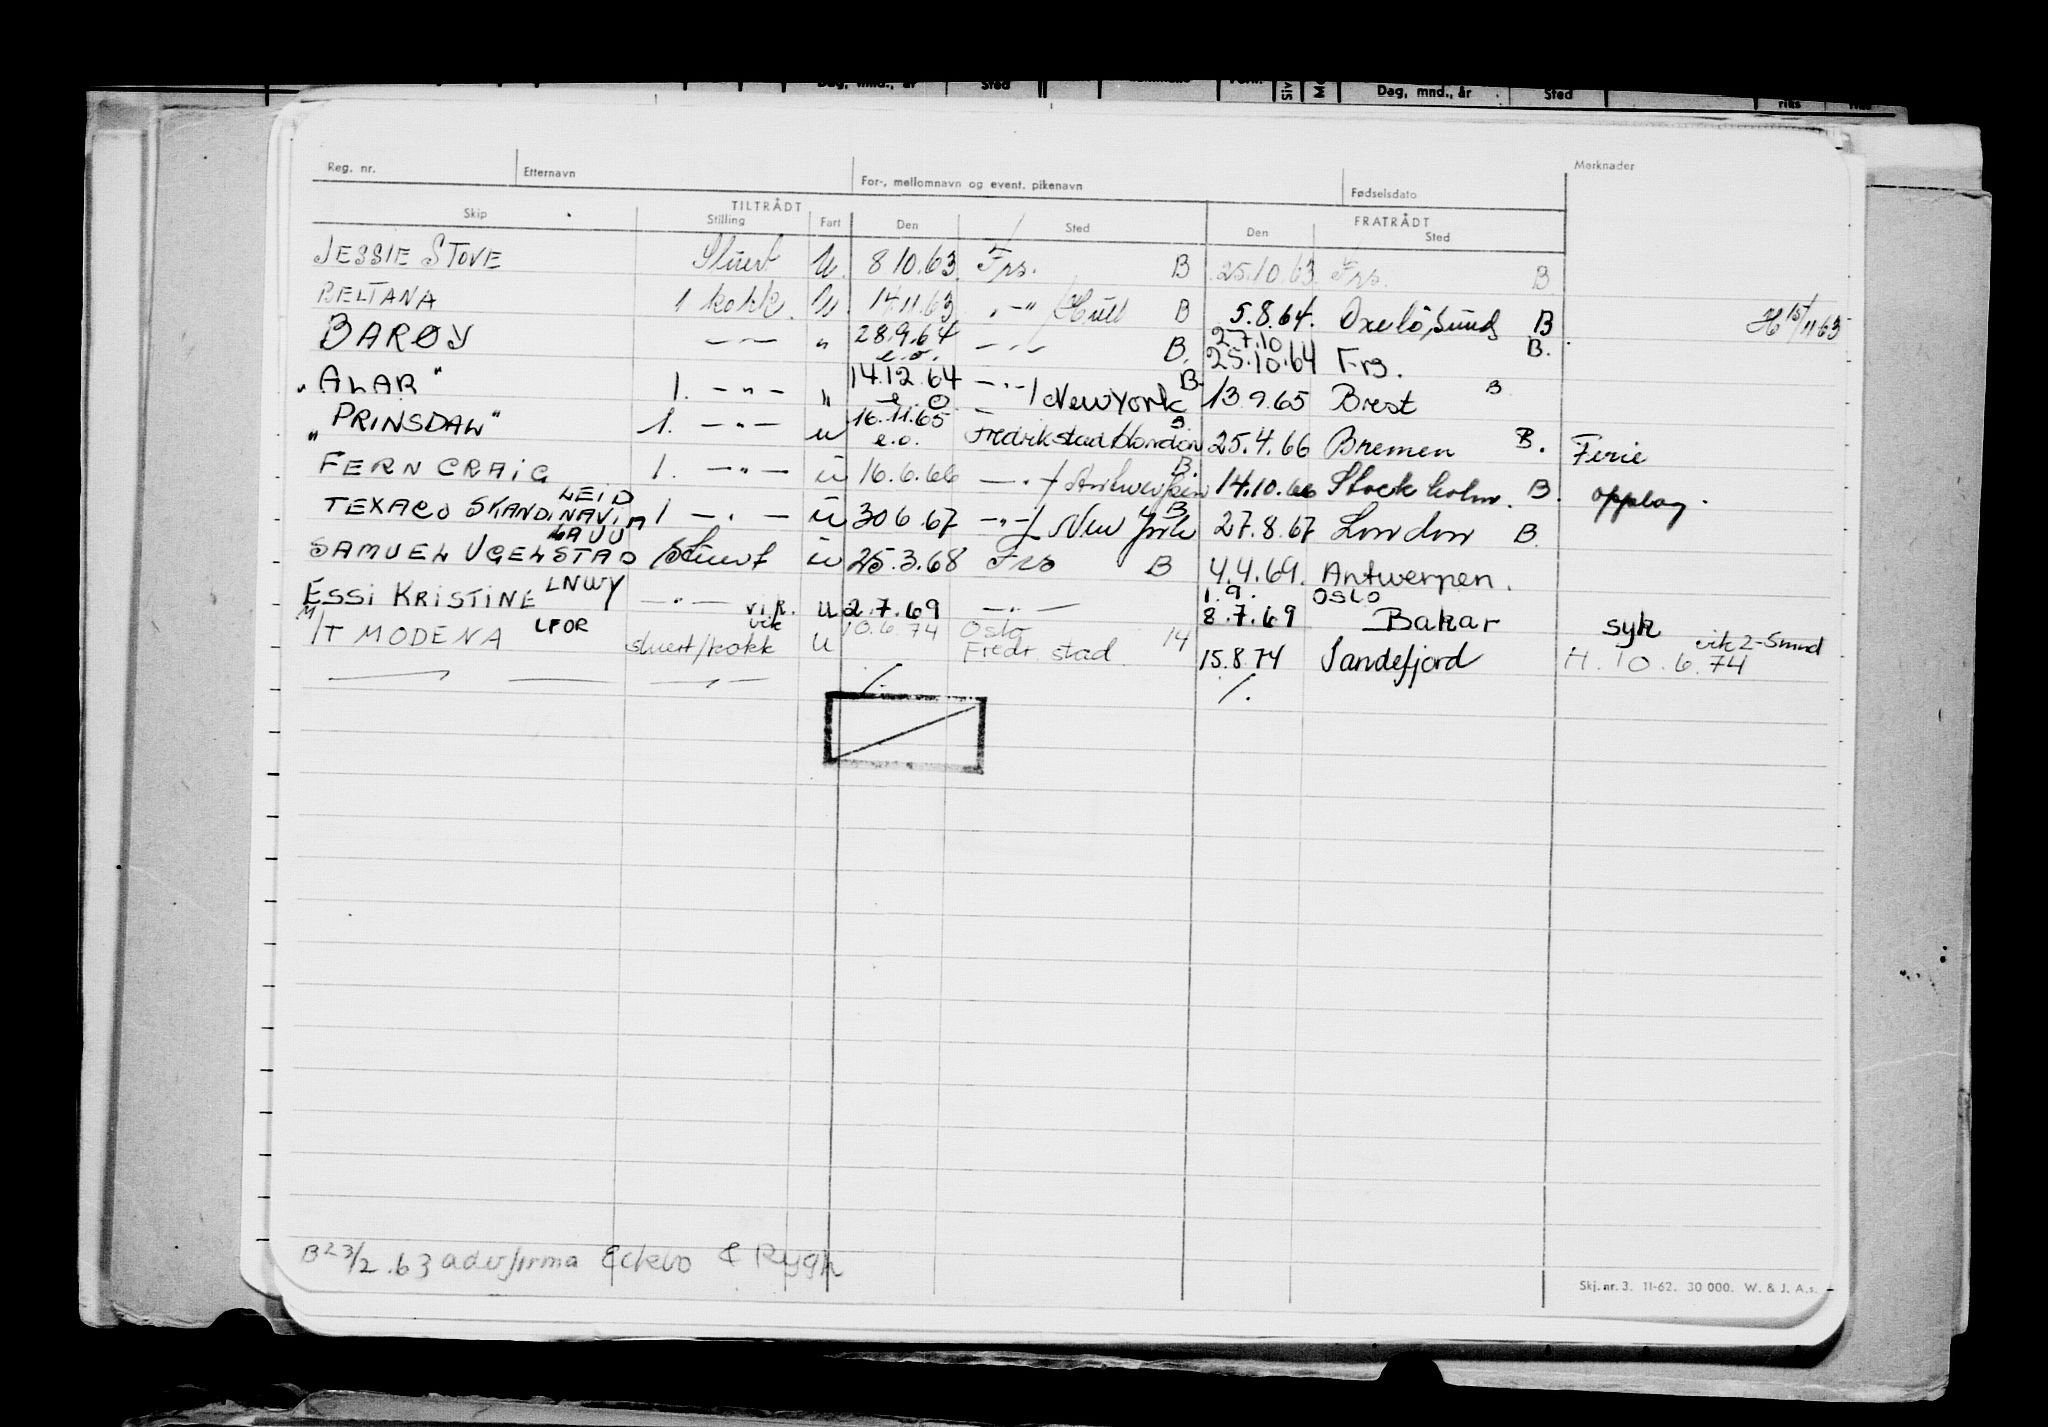 Dag, mnd., år Sted Dag, mnd., år Sted
Reg. nr. Etternavn For-, mellomnavn og event. pikenavn Fødselsdato Merknader
TILTRÅDT FRATRÅDT
Skip Stilling Fart Den Sted Den Sted
JESSIE STOVE Stuert U. 8 10.63 Frs. B 25.10.63 Frs. B
BELTANA 1 kokk. U. 14.11.63 " / Hull B 5.8.64. Oxeløsund B H 15/11 63
BARØY — " — " 28.9.64 e.o. — " — B. 27.10 25.10.64 Frs. B.
"ALAR" 1. — " — " 14.12.64 e.o. — " — / New York B. 13.9.65 Brest B
"PRINSDAL" 1. — " — u 16.11.65 e.o. Fredrikstad/London B. 25.4.66 Bremen B. Ferie
FERN CRAIG 1. — " — u 16.6.66 — " — / Antwerpen B. 14.10.66 Stockholm. B. opplag.
TEXACO SKANDINAVIA LEID 1 — " — u 30 6.67 — " — / New York B 27.8.67 London B.
SAMUEL UGELSTAD LAUU Stuert u 25.3.68 Frs B 4.4.69. Antwerpen.
ESSI KRISTINE LNWY — " — vik. u 2.7.69 — " — 1.9. OSLO 8.7.69 Bakar syk
M/T MODENA LFOR stuert/kokk vik U 10.6.74 Oslo Fredr.stad 14 15.8.74 Sandefjord H. 10.6.74
B 23/2.63 advfirma Eckbo & Rygh
Skj. nr. 3. 11-62. 30 000. W. & J. A.s.